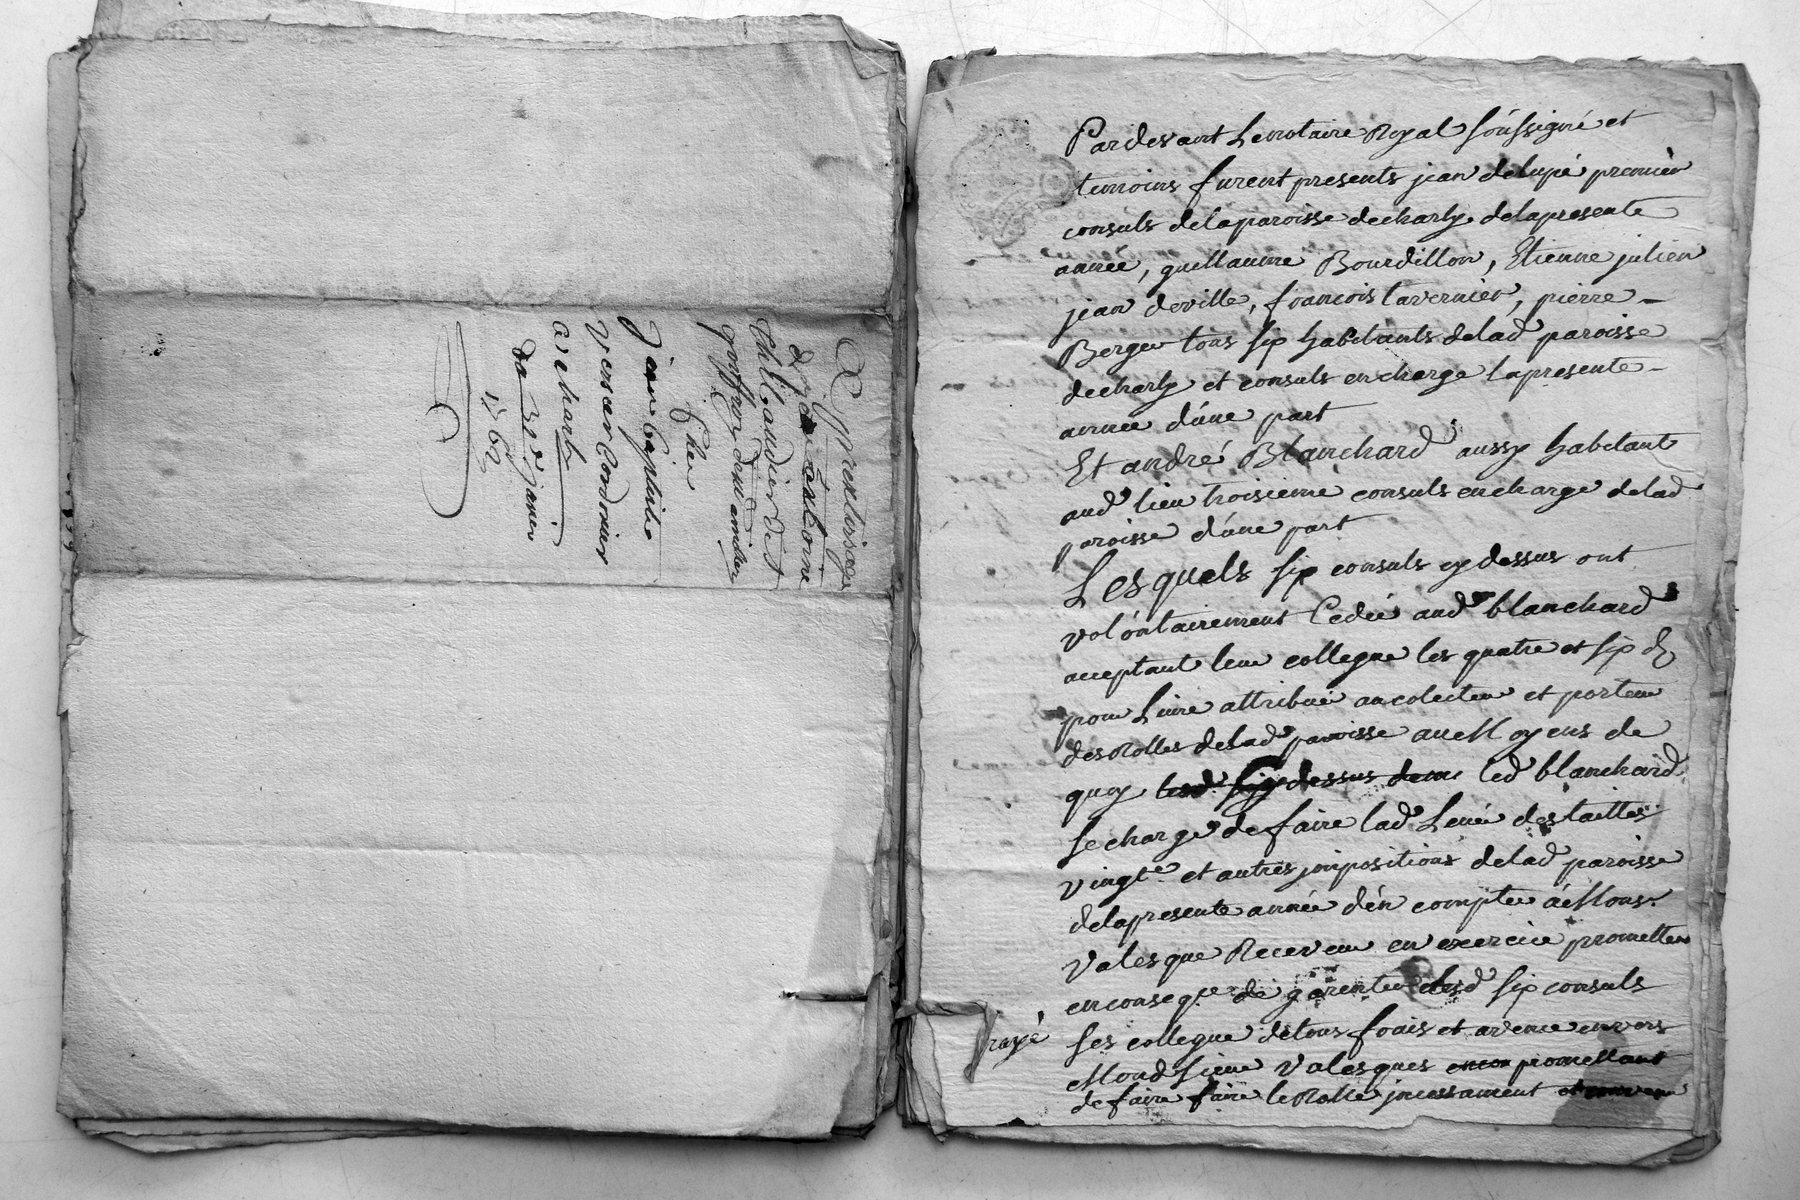 Apprentissage
de jean antoine
Thibaudier dit
gouffroy demeurant
Chez
jean baptiste
versaer Cordonier
a charly
du 30e janvier
1762
Pardevant Le notaire Royal soûssigné et
temoins furent presents jean delupé premier
consuls de la paroisse de charly de la presente
année, guillaume Bourdillon, Etienne julien
jean deville, francois tavernier, pierre
Berger tous six habitants de lad paroisse
de charly et consuls en charge la presente
année d'une part
Et andré Blanchard aussy habitant
aud lieu troisieme consuls en charge de lad
paroisse d'une part
Lesquels six consuls cy dessus ont
volontairement Cedée aud blanchard
acceptant leur collegue les quatre et six d
pour Livre attribué au colecteur et porteur
des Rolles de lad paroisse au Moyens de
quoy lesd cy dessus led blanchard
se charge de faire lad Levée des tailles
vingte et autres jmpositions de lad paroisse
de la presente année d'en compter à Mons
Valesque Receveur en exercice promettre
en conseqce de garentir lesd six consuls
ses collegue de tous frais et avenir envers
Mond sieur Valesques promettant
de faire faire le Rolle jncessament et
rayé